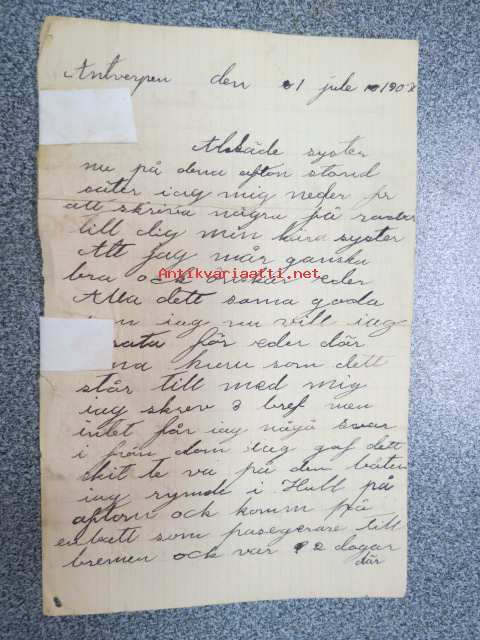 Antverpen den 21 jule 1902
Alskäde syster
nu på dena afton stond
säter iag mig neder för
att skriva några få rader
till dig min kära syster
Att jag mår ganska
bra och önskar eder
Antikvariaatti.net
Alla dett sama goda
iag nu vill iag
för eder där
huru som dett
står till med mig
iag skrev 3 bref men
intet får iag någå svar
i från dom iag gaf dett
skit te va på den båten
iag rymde i Hull på
aftorn och komm på
en bått som pasegerare till
bremen och var 2 dagar
där